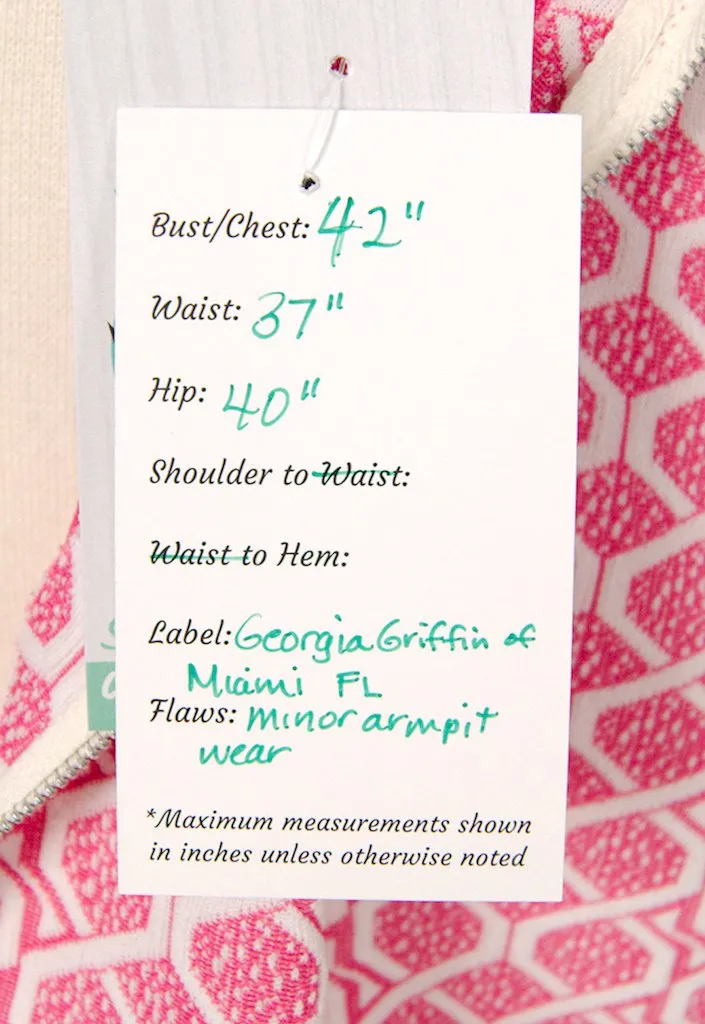 Bust/Chest: 42"
Waist: 37"
Hip: 40"
Shoulder to Waist:
Waist to Hem:
Label: Georgia Griffin of
Miami FL
Flaws: minor armpit
wear
*Maximum measurements shown
in inches unless otherwise noted